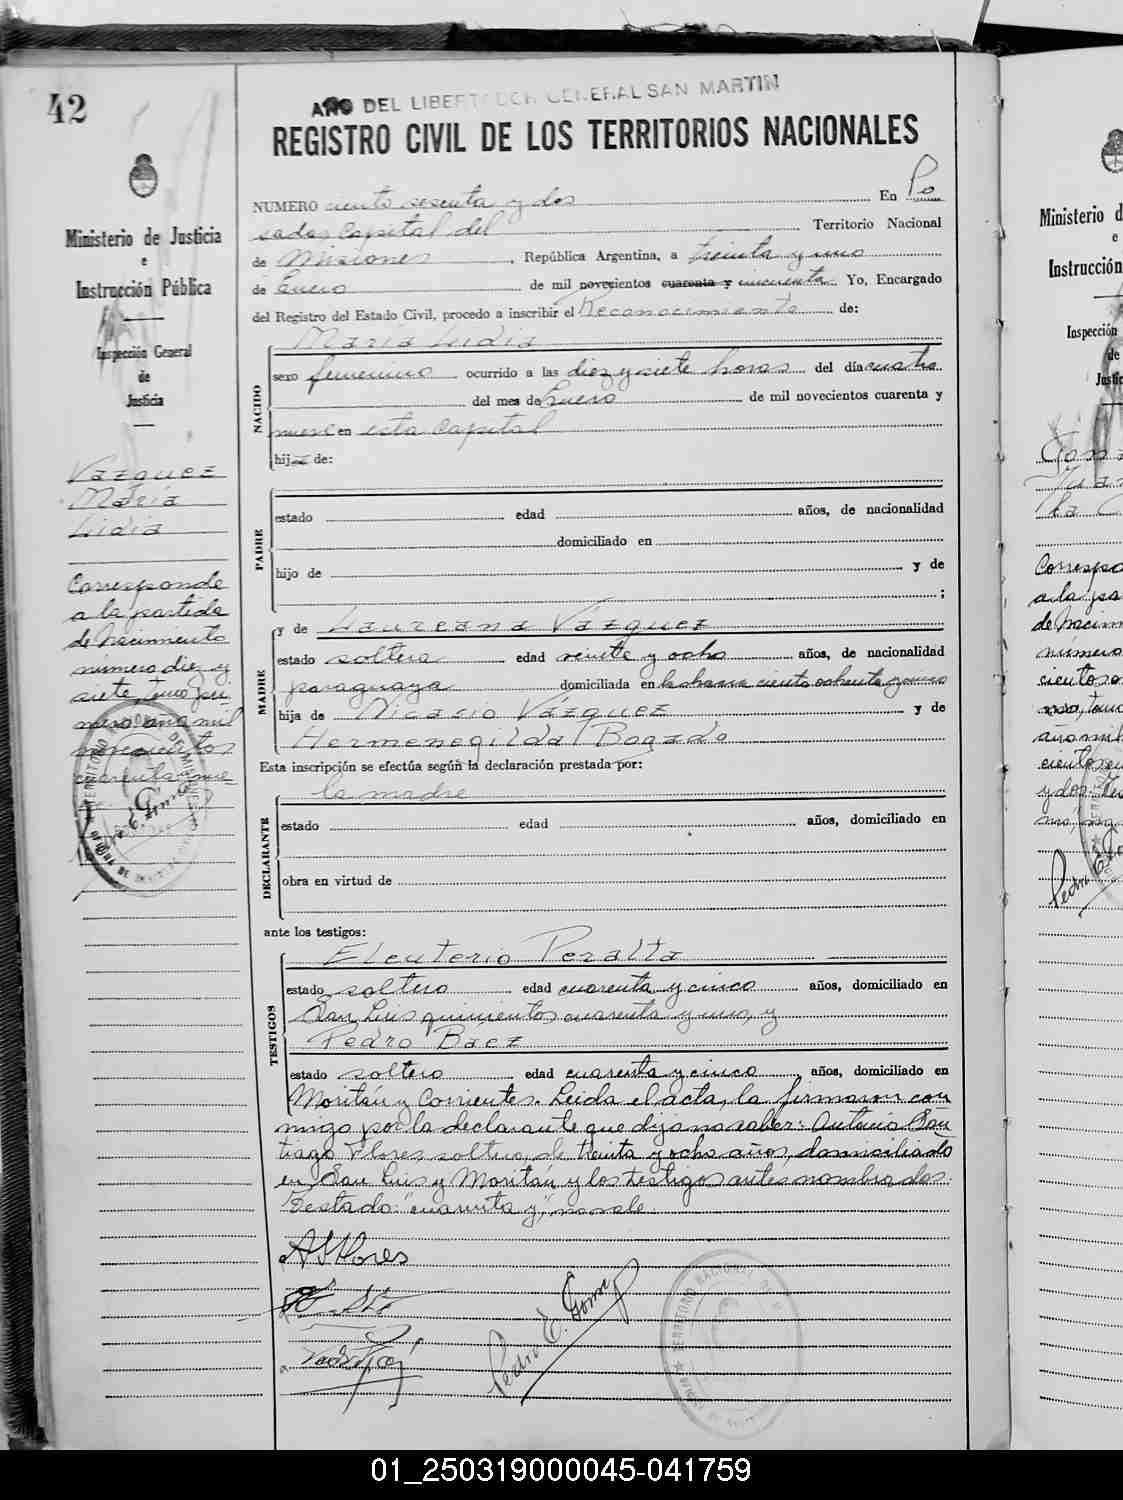 42
AÑO DEL LIBERTADOR GENERAL SAN MARTIN
REGISTRO CIVIL DE LOS TERRITORIOS NACIONALES
Ministerio de Justicia
e
Instrucción Pública
Inspección General
de
Justicia
Vázquez
María
Lidia
Corresponde
a la partida
de Nacimiento
número diez y
siete, tomo pri
mero, año mil
novecientos
cuarenta nue
NUMERO ciento sesenta y dos En Po
sadas Capital del Territorio Nacional
de Misiones, República Argentina, a treinta y uno
de Enero de mil novecientos cuarenta y cincuenta. Yo, Encargado
del Registro del Estado Civil, procedo a inscribir el Reconocimiento de:
María Lidia
NACIDO
sexo femenino ocurrido a las diez y siete horas del día cuatro
del mes de Enero de mil novecientos cuarenta y
nueve en esta Capital
hija de:
PADRE
estado edad años, de nacionalidad
domiciliado en
hijo de y de
;
MADRE
y de Laureana Vázquez
estado soltera edad veinte y ocho años, de nacionalidad
paraguaya domiciliada en la chacra ciento ochenta y uno
hija de Nicasio Vázquez y de
Hermenegilda Bogado
Esta inscripción se efectúa según la declaración prestada por:
la madre
DECLARANTE
estado edad años, domiciliado en
obra en virtud de
ante los testigos:
TESTIGOS
Eleuterio Peralta
estado soltero edad cuarenta y cinco años, domiciliado en
San Luis quinientos cuarenta y uno, y
Pedro Baez
estado soltero edad cuarenta y cinco, años, domiciliado en
Moritán y Corrientes. Leida el acta, la firmaron con
migo por la declarante que dijo no saber: Antonio San
tiago Flores soltero, de treinta y ocho años, domiciliado
en San Luis y Moritán y los testigos antes nombrados.
Testado: "cuarenta y", no vale.
ASFlores
Pedro E. Gomez
Ministerio d
e
Instrucción
Inspección
de
Justic
Correspo
a la pa
de Nacim
número
01_250319000045-041759